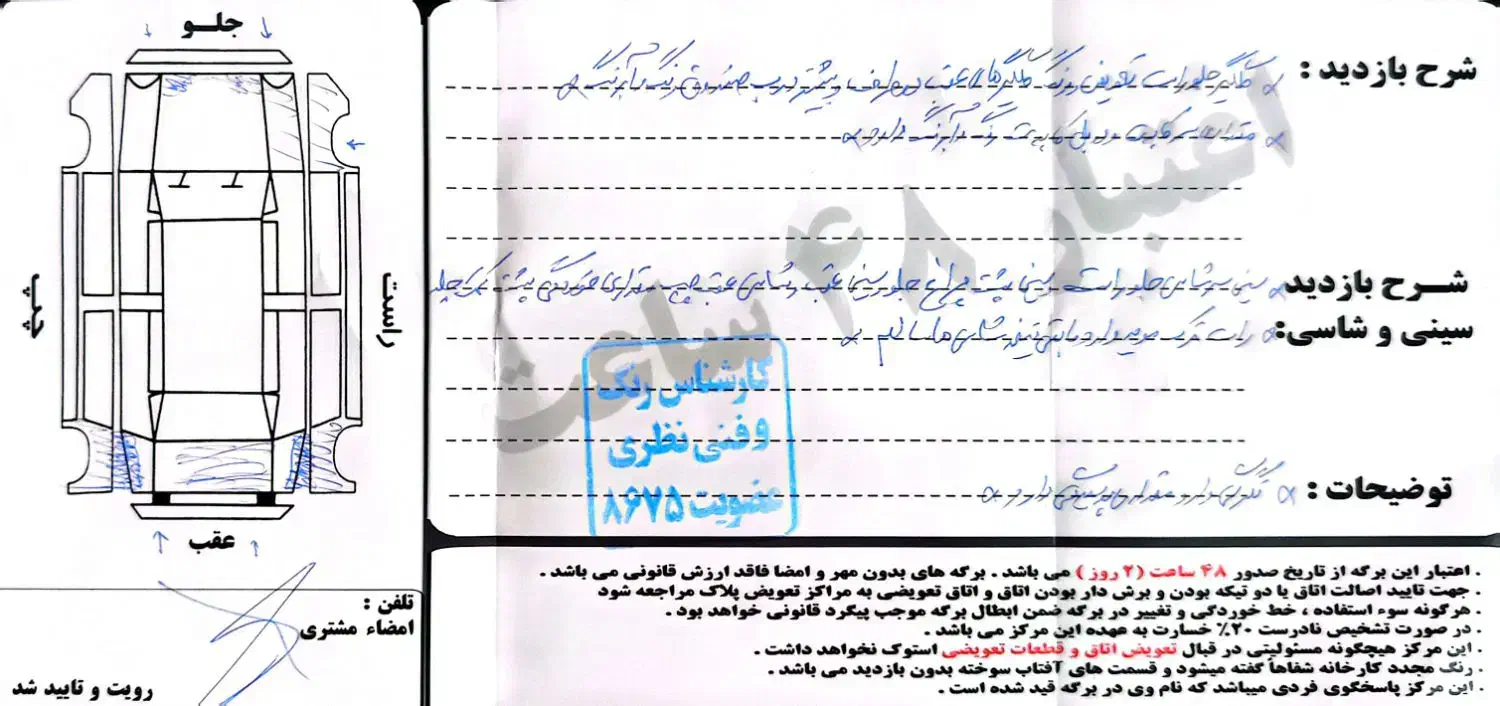 جلو
راست
چپ
عقب
تلفن :
امضاء مشتری
رویت و تایید شد
شرح بازدید : گلگیر جلو راست تعویض رنگ گلگیرهای عقب دو طرف و پشت درب صندوق رنگ و آبرنگ
مقداری سر کاپوت رنگ و آبرنگ دارد
شرح بازدید سینی و شاسی: سینی سرشاسی جلو راست سینی پشت چراغ جلو سینی عقب شاسی عقب چپ مقداری خوردگی پشت گلگیر جلو
راست شاسی ها سالم
اعتبار ۴۸ ساعت
کارشناس رنگ
و فنی نظری
عضویت ۸۶۷۵
توضیحات : دارد مقداری دارد
. اعتبار این برگه از تاریخ صدور ۴۸ ساعت (۲ روز ) می باشد . برگه های بدون مهر و امضا فاقد ارزش قانونی می باشد .
. جهت تایید اصالت اتاق یا دو تیکه بودن و برش دار بودن اتاق و اتاق تعویضی به مراکز تعویض پلاک مراجعه شود
. هرگونه سوء استفاده ، خط خوردگی و تغییر در برگه ضمن ابطال برگه موجب پیگرد قانونی خواهد بود .
. در صورت تشخیص نادرست ۲۰٪ خسارت به عهده این مرکز می باشد .
. این مرکز هیچگونه مسئولیتی در قبال تعویض اتاق و قطعات تعویضی استوک نخواهد داشت .
. رنگ مجدد کارخانه شفاهاً گفته میشود و قسمت های آفتاب سوخته بدون بازدید می باشد .
. این مرکز پاسخگوی فردی میباشد که نام وی در برگه قید شده است .